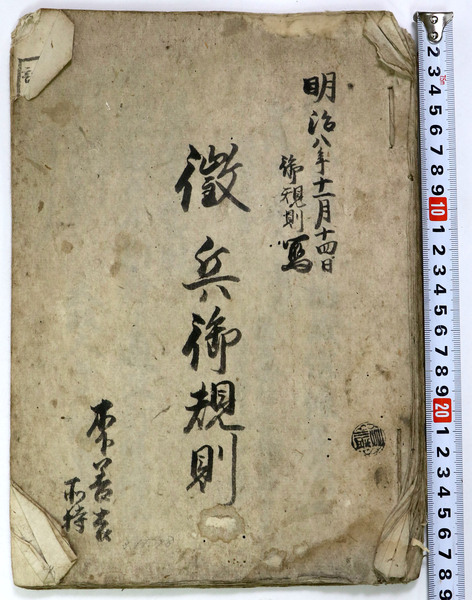 明治八年十一月十四日
御規則写
徴兵御規則
善吉
所持
2 3 4 5 6 7 8 9 10 1 2 3 4 5 6 7 8 9 20 1 2 3 4 5 6 7 8 9